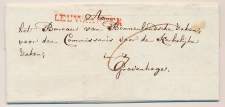 Aan
LEEUWARDEN
het Bureau van Binnenlandsche Zaken,
voor den Commissaris van de Kerkelijke
Zaken,
in
's Gravenhage.